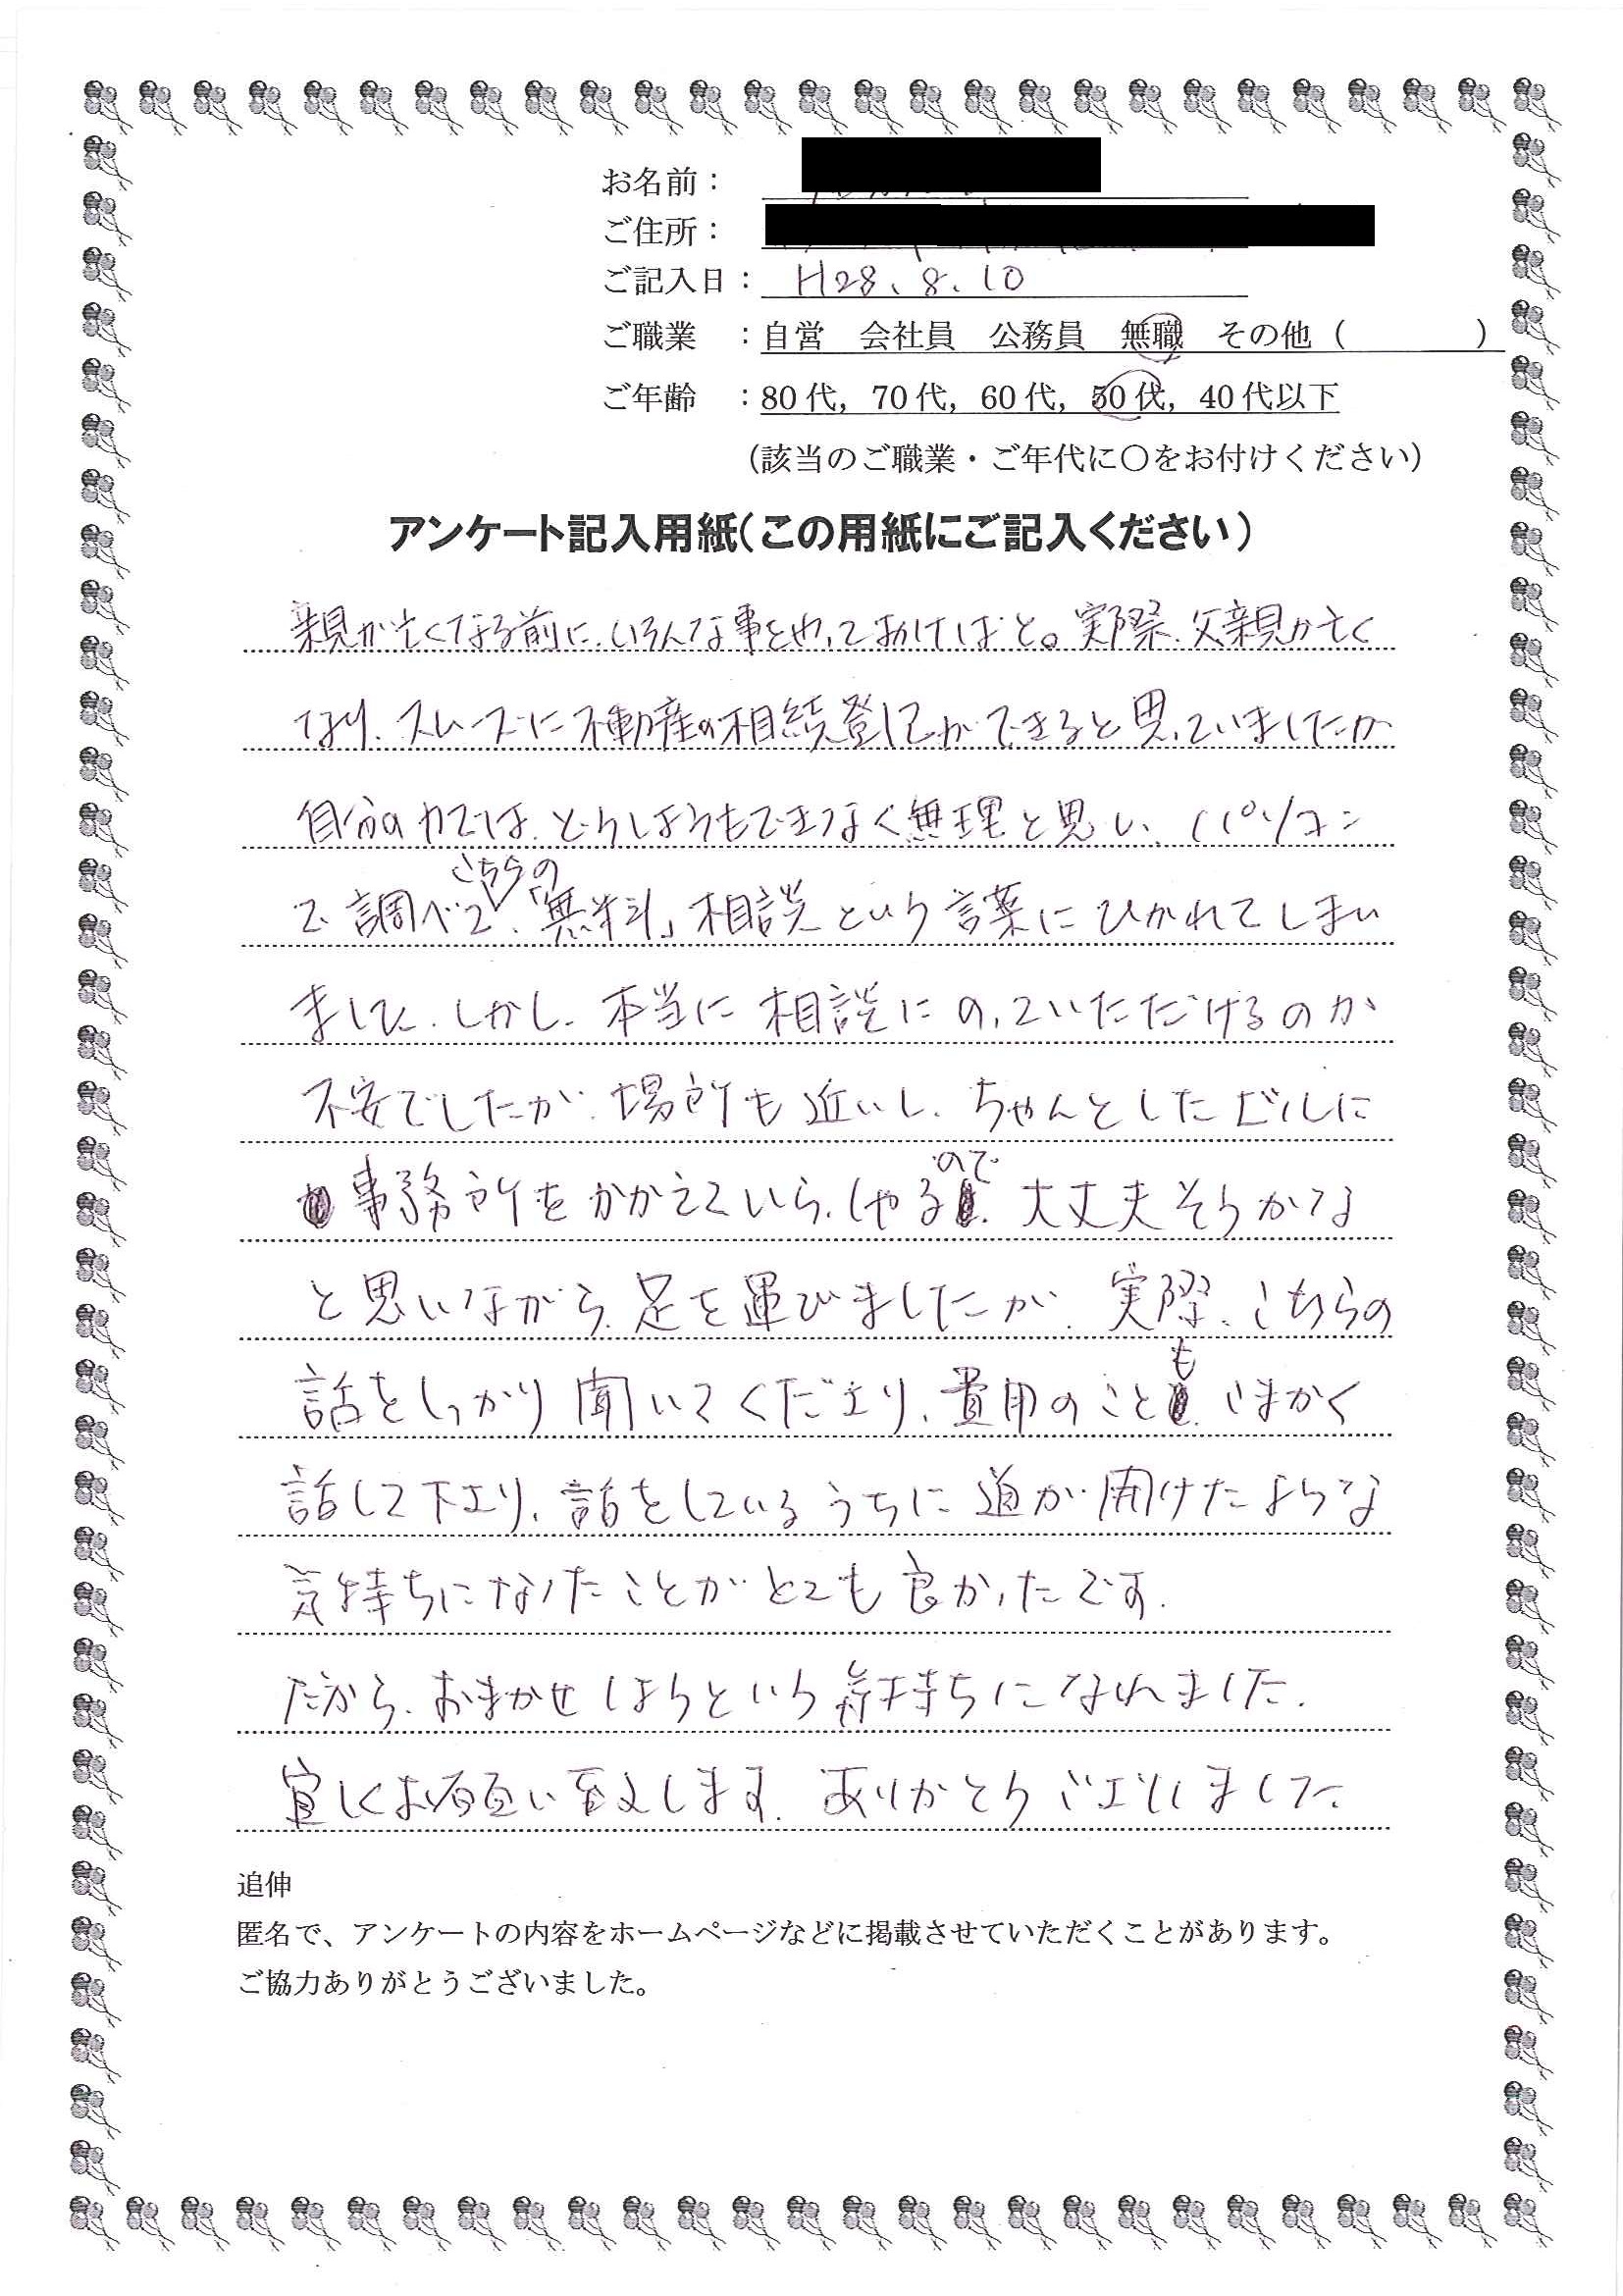 お名前：
ご住所：
ご記入日： H28.8.10
ご職業 ：自営 会社員 公務員 無職 その他（ ）
ご年齢 ：80代，70代，60代，50代，40代以下
（該当のご職業・ご年代に○をお付けください）
アンケート記入用紙（この用紙にご記入ください）
親が亡くなる前に、いろんな事をやっておけばと。実際、父親が亡く
なり、スムーズに不動産の相続登記ができると思っていましたが
自分の力では、どうしようもできなく無理と思い、パソコン
で調べて、こちらの「無料」相談という言葉にひかれてしまい
ました。しかし、本当に相談にのっていただけるのか
不安でしたが、場所も近いし、ちゃんとしたビルに
事務所をかかえていらっしゃるので、大丈夫そうかな
と思いながら、足を運びましたが、実際、こちらの
話をしっかり聞いてくださり、費用のことも、こまかく
話して下さり、話をしているうちに道が開けたような
気持ちになったことがとても良かったです。
だから、おまかせしようという気持ちになれました。
宜しくお願い致します。ありがとうございました。
追伸
匿名で、アンケートの内容をホームページなどに掲載させていただくことがあります。
ご協力ありがとうございました。